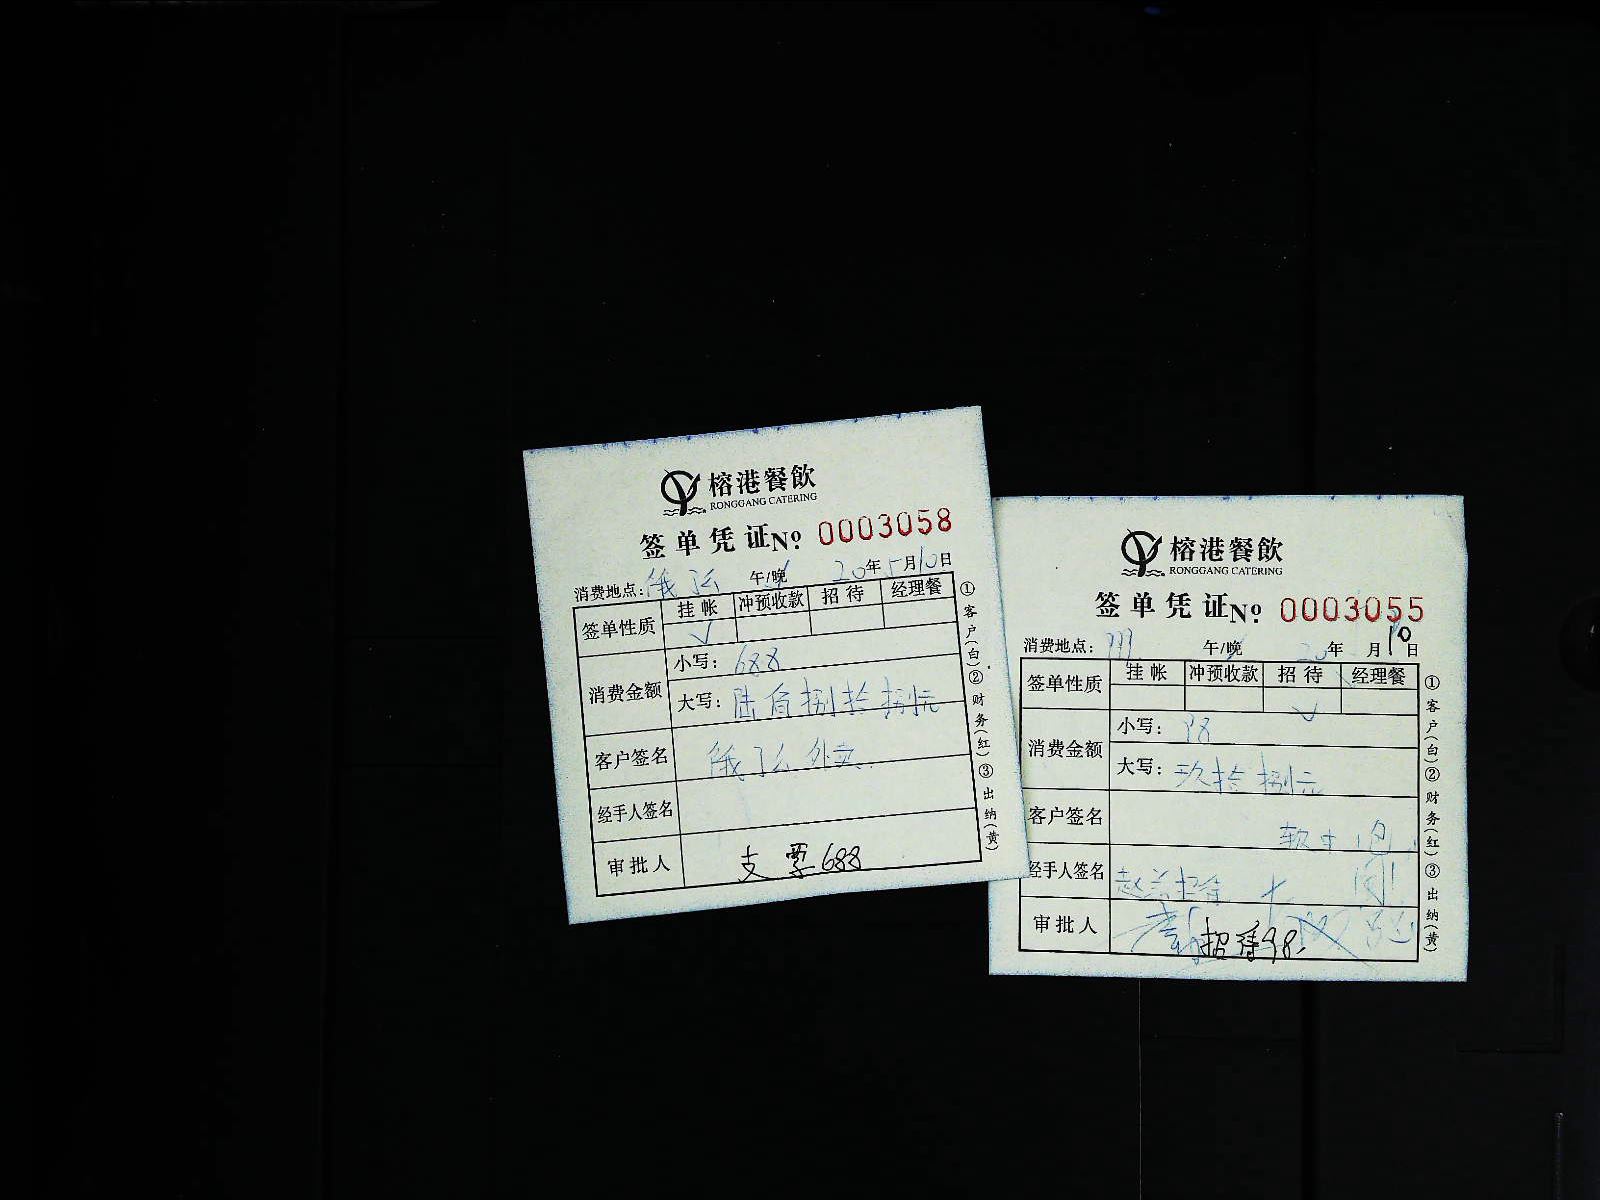 榕港餐飲
RONGGANG CATERING
签单凭证№ 0003058
消费地点：饿了么 午/晚 20年5月10日
签单性质 挂帐 冲预收款 招待 经理餐
√
消费金额 小写：688
大写：陆佰捌拾捌元
客户签名 饿了么外卖
经手人签名
审批人 支票688
①客户(白)②财务(红)③出纳(黄)
榕港餐飲
RONGGANG CATERING
签单凭证№ 0003055
消费地点： 午/晚 20年 月10日
签单性质 挂帐 冲预收款 招待 经理餐
√
消费金额 小写：98
大写：玖拾捌元
客户签名
经手人签名
审批人 招待98.
①客户(白)②财务(红)③出纳(黄)